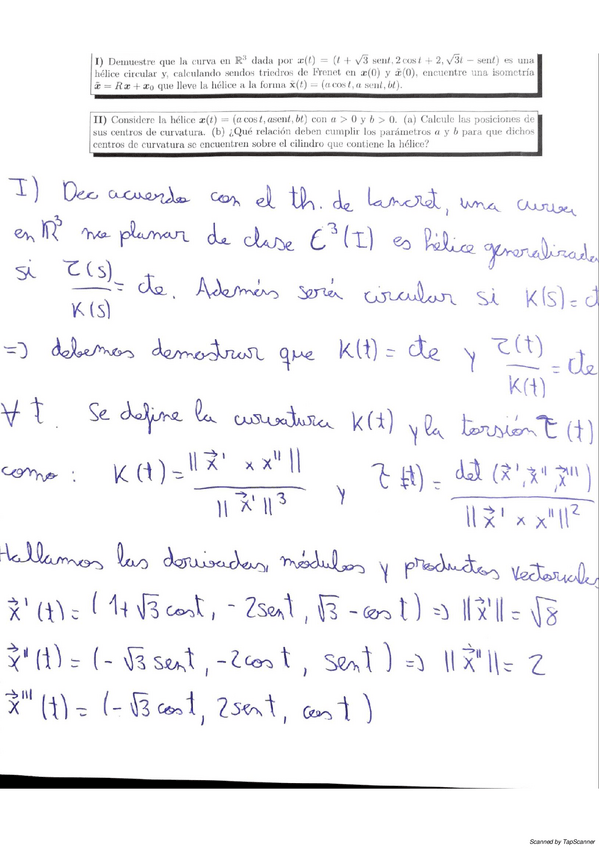 I) Demuestre que la curva en ℝ³ dada por x(t) = (t + √3 sent, 2 cos t + 2, √3t − sent) es una
hélice circular y, calculando sendos triedros de Frenet en x(0) y x̃(0), encuentre una isometría
x̃ = Rx + x₀ que lleve la hélice a la forma x̃(t) = (a cos t, a sent, bt).
II) Considere la hélice x(t) = (a cos t, asent, bt) con a > 0 y b > 0. (a) Calcule las posiciones de
sus centros de curvatura. (b) ¿Qué relación deben cumplir los parámetros a y b para que dichos
centros de curvatura se encuentren sobre el cilindro que contiene la hélice?
I) Dec acuerdo con el th. de Lancret, una curva
en ℝ³ no planar de clase C³(I) es hélice generalizada
si τ(s)/K(s) = cte. Además será circular si K(s) = ct
=> debemos demostrar que K(t) = cte y τ(t)/K(t) = cte
∀ t. Se define la curvatura K(t) y la torsión τ(t)
como: K(t) = ||x⃗' × x''|| / ||x⃗'||³ y τ(t) = det(x⃗', x⃗'', x⃗''') / ||x⃗' × x''||²
Hallamos las derivadas, módulos y productos vectoriales
x⃗'(t) = (1+√3 cost, -2sent, √3 - cos t) => ||x⃗'|| = √8
x⃗''(t) = (-√3 sent, -2cost, sent) => ||x⃗''|| = 2
x⃗'''(t) = (-√3 cost, 2sent, cost)
Scanned by TapScanner